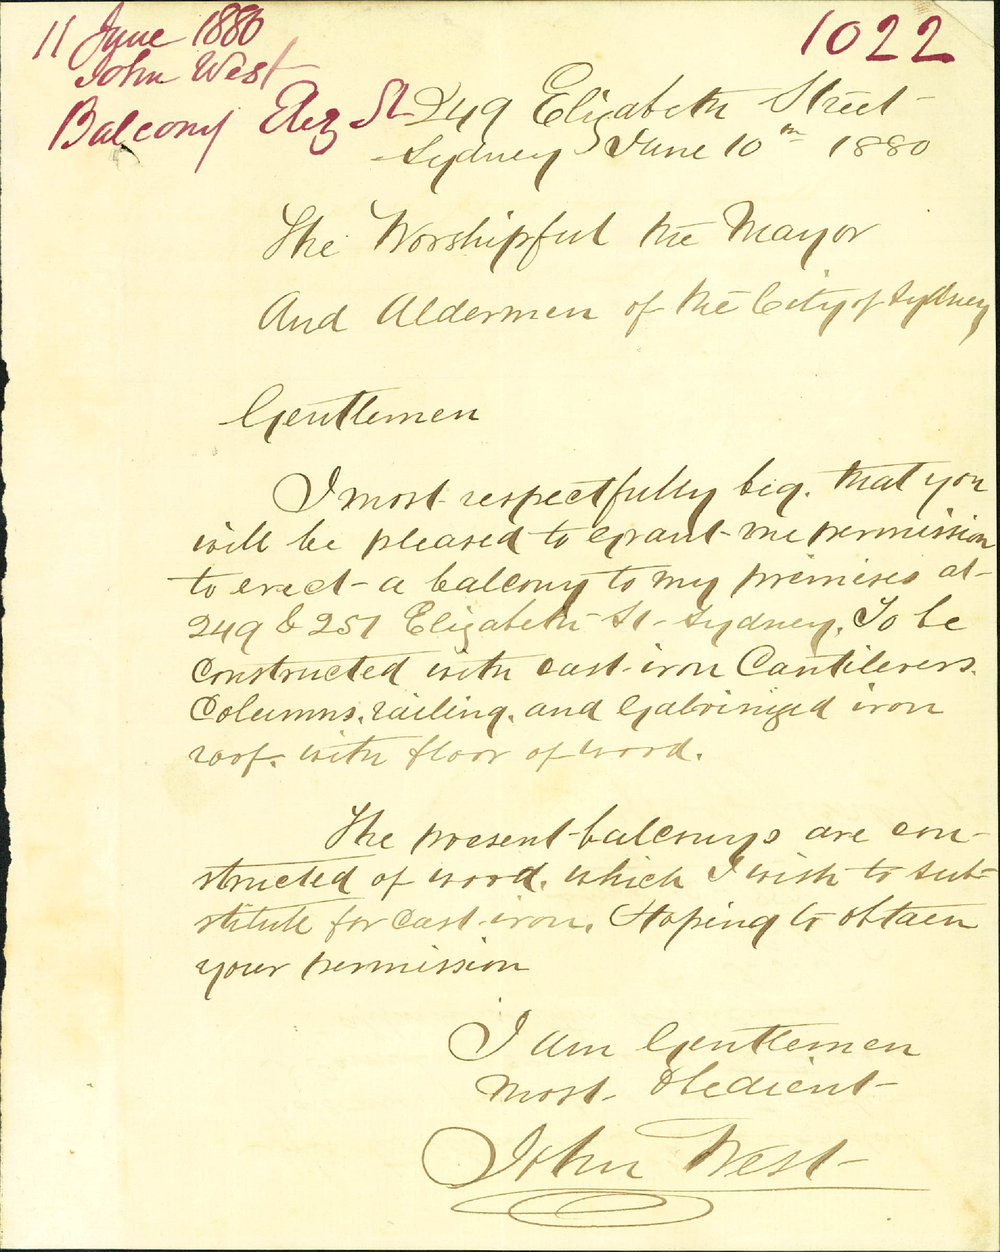 11 June 1880
John West
Balcony Eliz St
1022
249 Elizabeth Street
Sydney June 10th 1880
The Worshipful the Mayor
And Aldermen of the City of Sydney
Gentlemen
I most respectfully beg. that you
will be pleased to grant me permission
to erect a balcony to my premises at
249 & 251 Elizabeth St Sydney. To be
constructed with cast iron Cantilevers.
Columns, railing. and Galvinized iron
roof. with floor of wood.
The present balconys are con-
structed of wood. which I wish to sub-
stitute for cast iron. Hoping to obtain
your permission
I am Gentlemen
most. obedient
John West